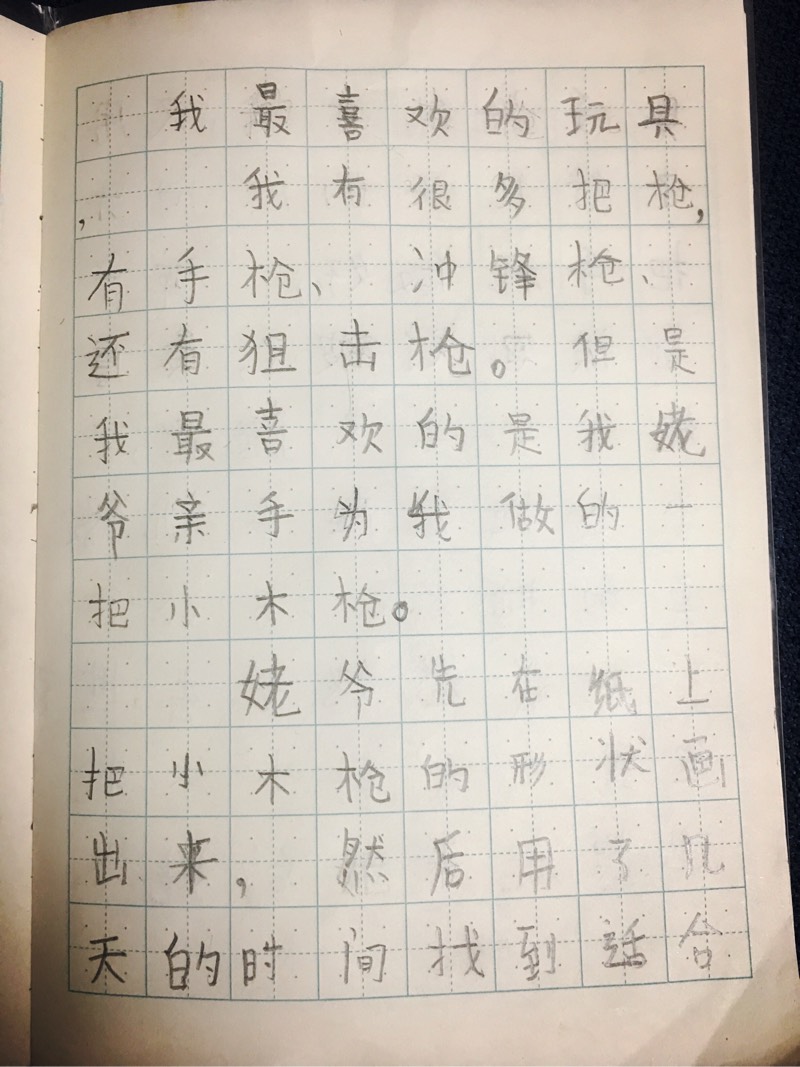 我最喜欢的玩具
我有很多把枪,
有手枪、冲锋枪、
还有狙击枪。但是
我最喜欢的是我姥
爷亲手为我做的一
把小木枪。
姥爷先在纸上
把小木枪的形状画
出来,然后用了几
天的时间找到适合